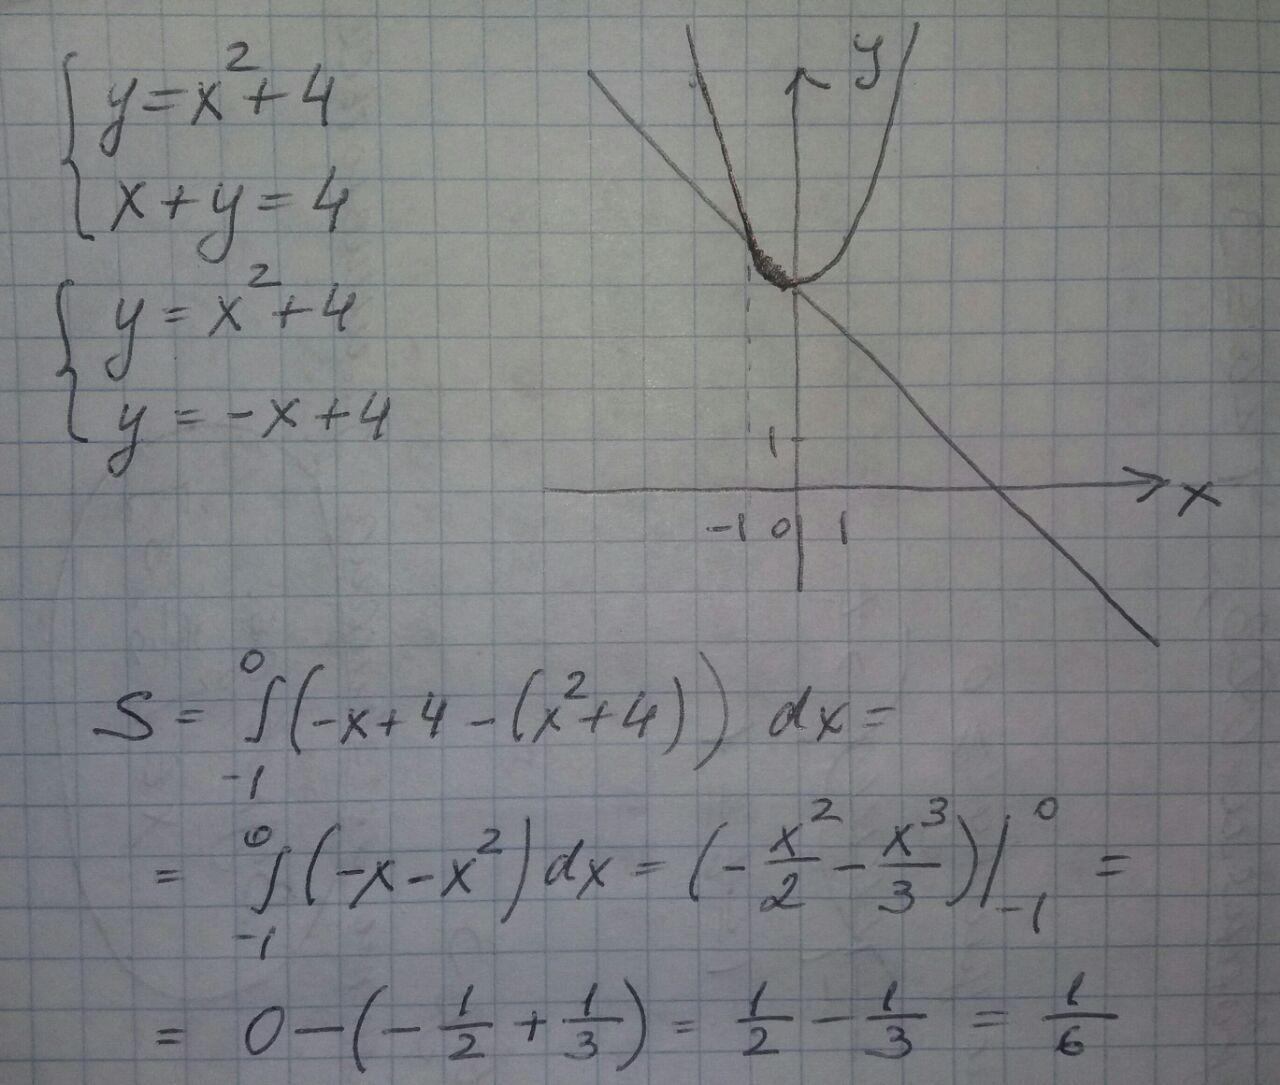 y = x² + 4
x + y = 4
y = x² + 4
y = -x + 4
y
1
x
-1 0 1
S = ∫₋₁⁰ (-x + 4 - (x² + 4)) dx =
= ∫₋₁⁰ (-x - x²) dx = (- x²/2 - x³/3) |₋₁⁰ =
= 0 - (- 1/2 + 1/3) = 1/2 - 1/3 = 1/6